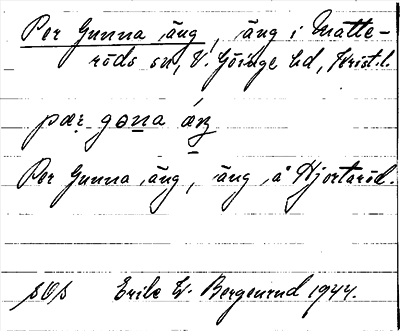 Per Gunna äng, äng i Matte-
röds sn, V. Göinge hd, Krist. l.
pær gɵna áŋ
Per Gunna äng, äng å Hjortaröd.
sOs Erik W. Bergenrud 1944.